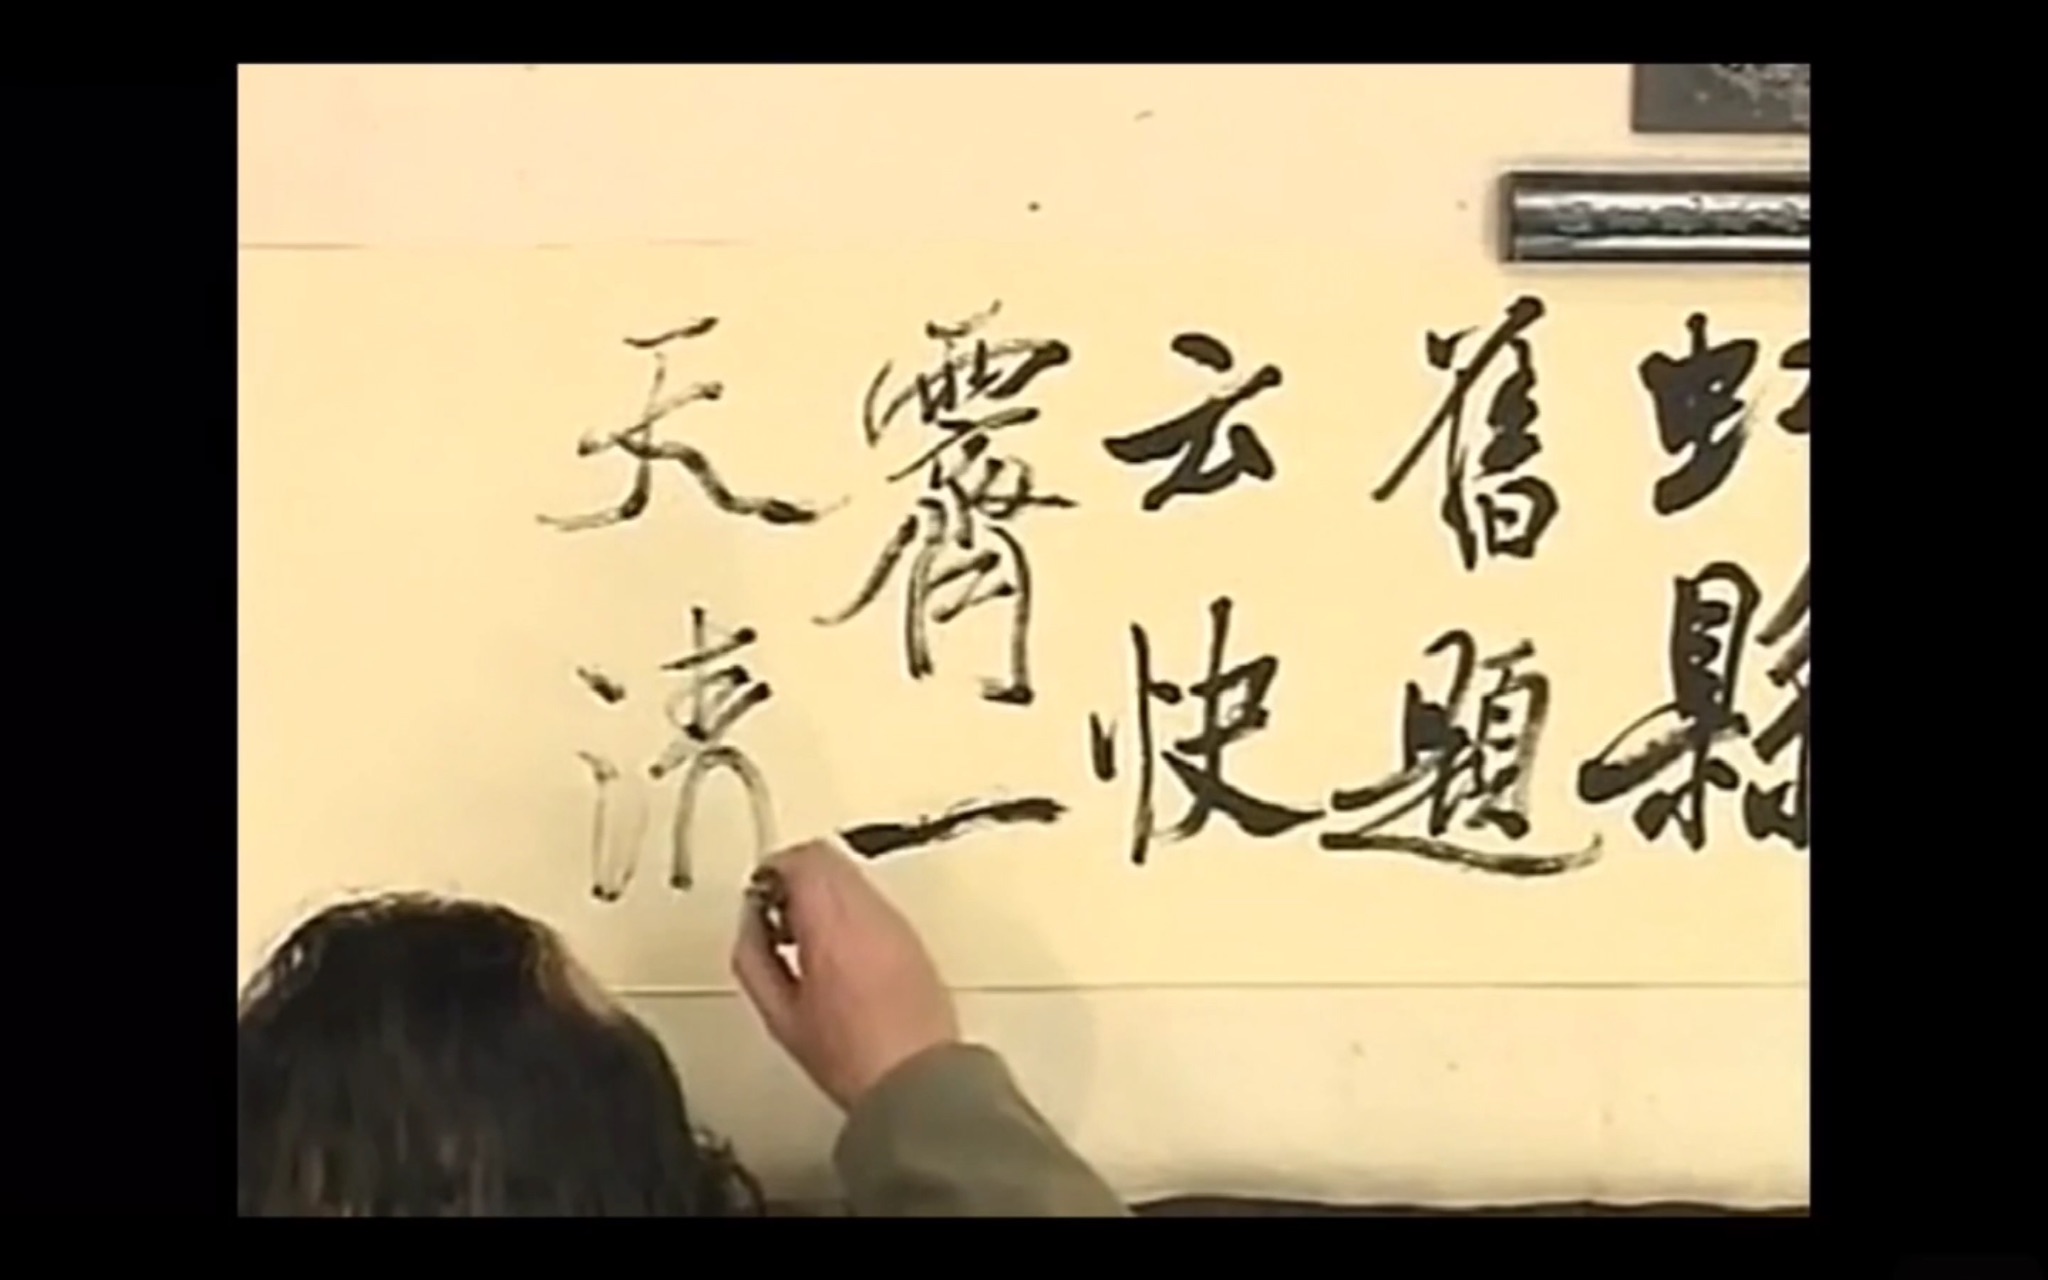 虹縣
舊題
云快
霽一
天清